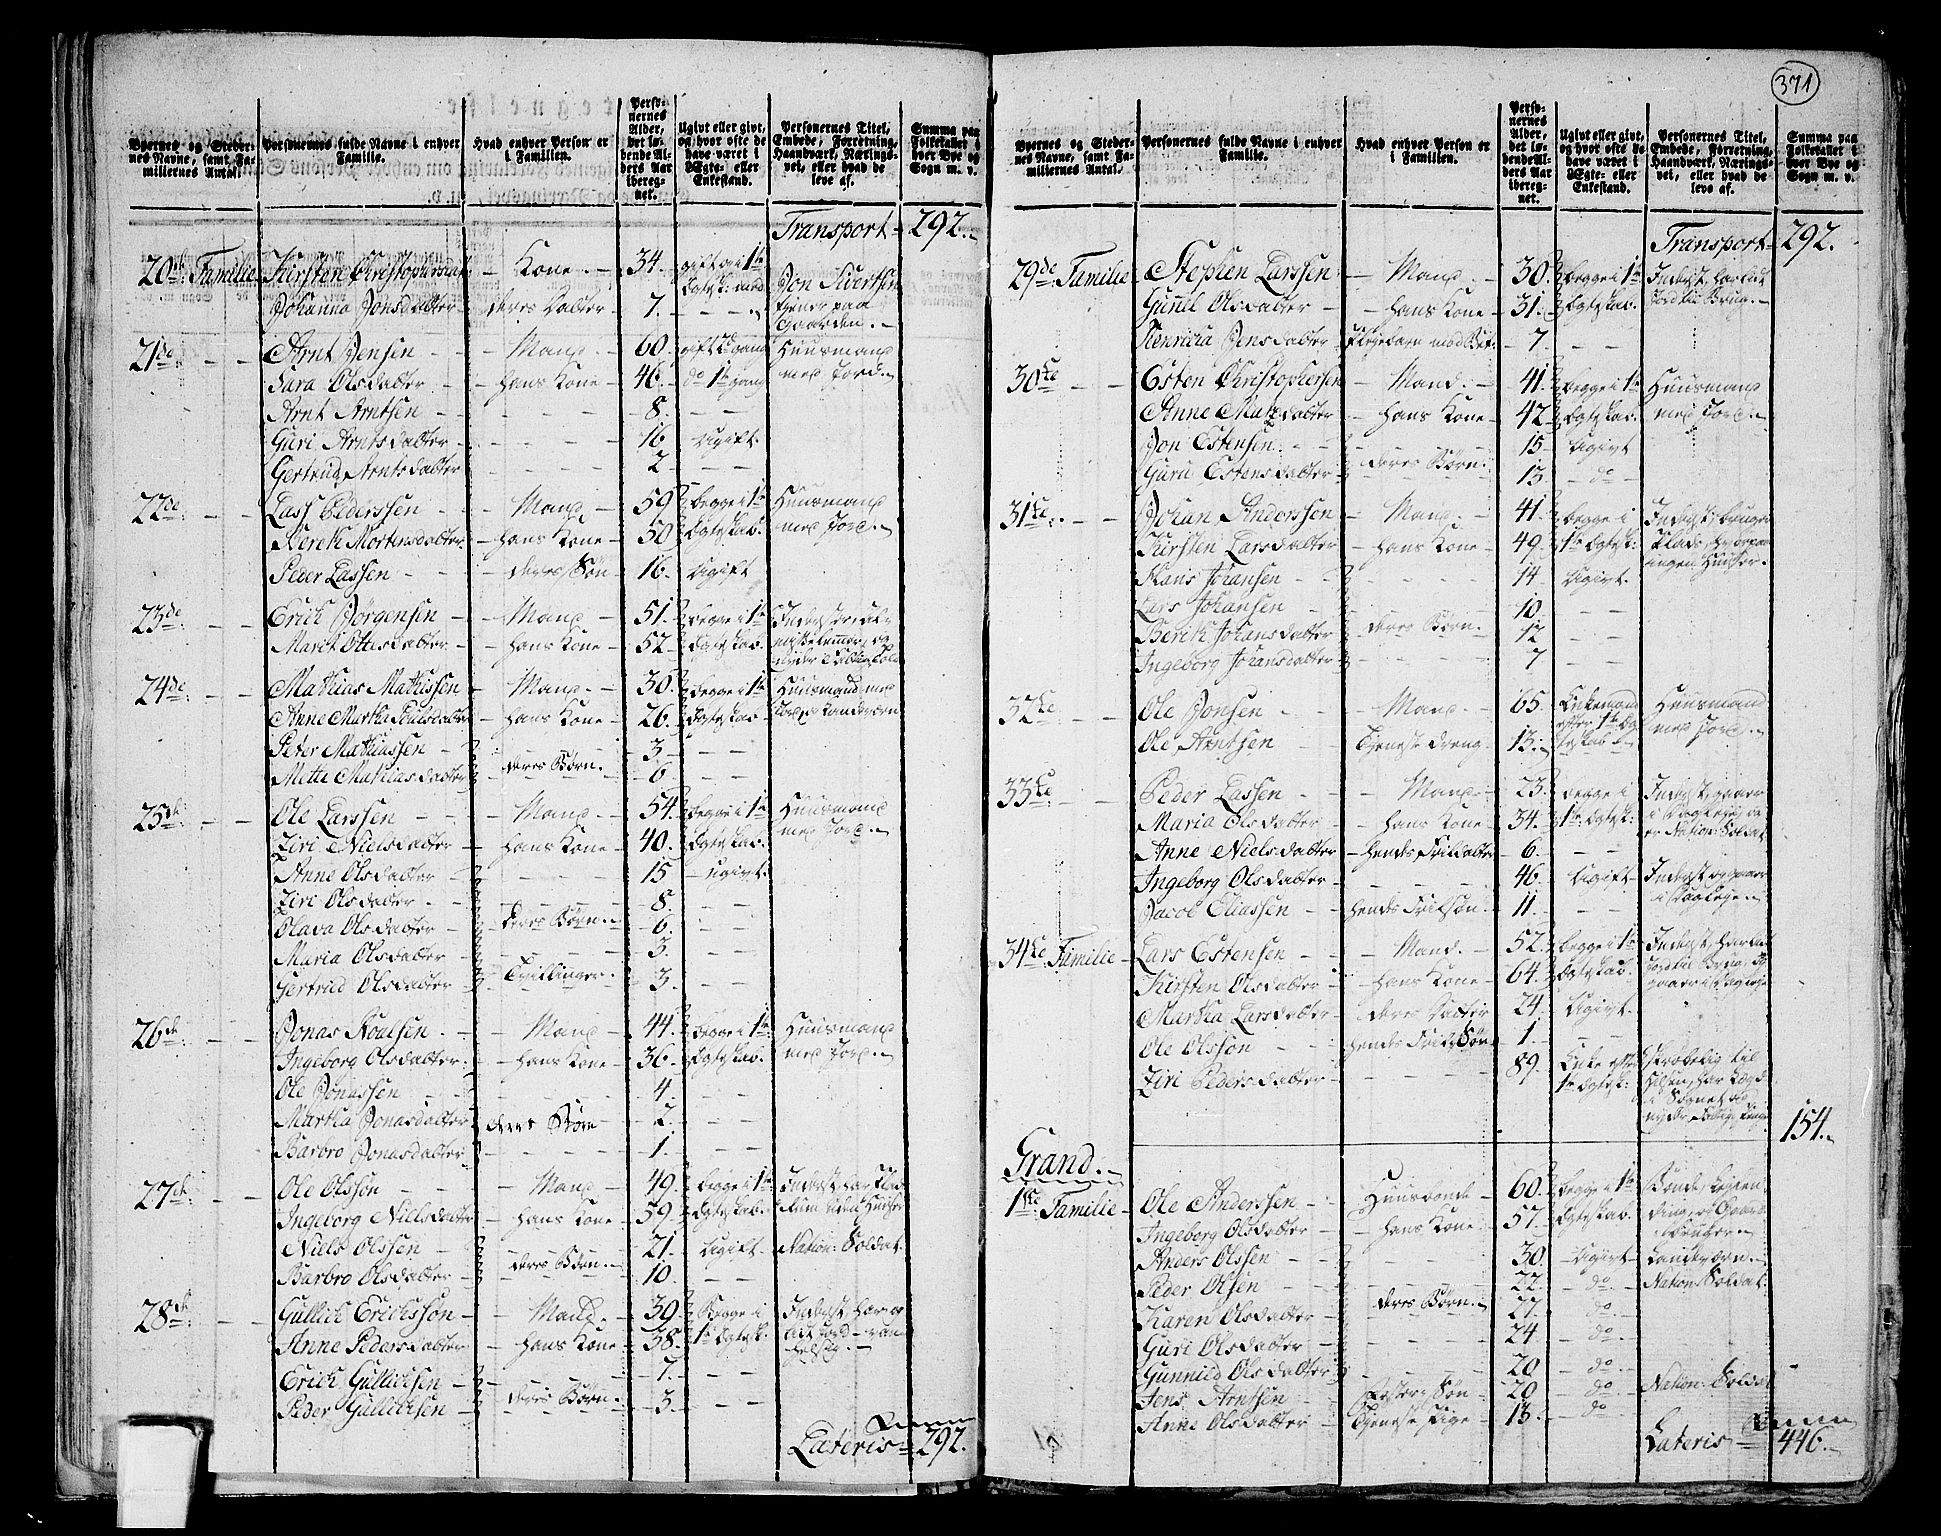 371
Byernes og Steder- nes Navne, samt Fa- miliernes Antal. Personernes fulde Navne i enhver Familie. Hvad enhver Person er i Familien. Perso- nernes Alder, det lø- bende Al- ders Aar iberegnet. Ugivt eller givt, og hvor ofte de have været i Ægte- eller Enkestand. Personernes Titel, Embede, Forretning, Haandværk, Nærings- vei, eller hvad de leve af. Summa paa Folketallet i hver Bye og Sogn m. v.
Transport 292.
20de Familie Kirsten Christophersdat Kone 34. gift i 1te Egtesk: med Jon Sivertsen
Johanna Jonsdatter deres Datter 7. tjener paa Gaarden.
21de Arnt Jensen Mand 60. gift gang Huusmand
Sara Olsdatter hans Kone 46. do 1te gang med Jord.
Arnt Arntsen 8.
Guri Arntsdatter 16 Ugift
Gertrud Arntsdatter 2
22de Lass Pederssen Mand 59 begge i 1te Huusmand
Berith Mortensdatter hans Kone 50 Egteskab. med Jord.
Peder Lassen deres Søn 16. Ugift
23de Erich Jørgensen Mand 51. begge i 1te
Marit Ottesdatter hans Kone 52 Egteskab.
24de Mathias Mathissen Mand 30. begge i 1te Huusmand med
Anne Martha Poulsdatter hans Kone 26. Egteskab. Jord
Peter Mathiassen 3
Mette Mathiasdatter deres Børn. 6
25de Ole Larssen Mand 54. begge i 1te Huusmand
Ziri Nielsdatter hans Kone 40. Egteskab. med Jord.
Anne Olsdatter 15 ugivt
Ziri Olsdatter 8.
Olava Olsdatter deres Børn. 6.
Maria Olsdatter 3.
Gertrud Olsdatter Tvillinger 3.
26de Jonas Poulsen Mand 44. begge i 1te Huusmand
Ingeborg Olsdatter hans Kone 36. Egteskab. med Jord.
Ole Jonassen 4
Martha Jonasdatter deres Børn 2.
Barbro Jonasdatter 1.
27de Ole Olssøn Mand 49. begge i 1te
Ingeborg Nielsdatter hans Kone 59. Egteskab.
Niels Olssen 21. Ugift Nation: Soldat
Barbro Olsdatter deres Børn. 10
28de Gullich Erichssøn Mand. 39. Begge i
Anne Pedersdatter hans Kone 38. 1te Egtesk.
Erich Gullichsen 7.
Peder Gullichsen deres Børn 3.
Summa
Lateris 292.
Byernes og Steder- nes Navne, samt Fa- miliernes Antal. Personernes fulde Navne i enhver Familie. Hvad enhver Person er i Familien. Perso- nernes Alder, det lø- bende Al- ders Aar iberegnet. Ugivt eller givt, og hvor ofte de have været i Ægte- eller Enkestand. Personernes Titel, Embede, Forretning, Haandværk, Nærings- vei, eller hvad de leve af. Summa paa Folketallet i hver Bye og Sogn m. v.
Transport 292.
29de Familie Stephen Larssen Mand. 30. begge i 1te Inderst, har lidt
Gunil Olsdatter hans Kone 31. Egteskab. Jord til Brug.
Henricia Jensdatter Plejebarn 7
30te Esten Christophersen Mand. 41. begge i 1te Huusmand
Anne Matzdatter hans Kone 42. Egteskab. med Jord.
Jon Estensen 15 Ugivt
Guru Estensdatter deres Børn. 13 do
31te Johan Anderssen Mand. 41. begge i Inderst, bruger
Kirsten Larsdatter hans Kone 49. 1te Egtesk: Plads, hvorpaa
Hans Johansen 14 Ugivt. ingen Huuser.
Lars Johansen 10
Berith Johansdatter deres Børn. 12
Ingeborg Johansdatter 7
32te Ole Jonsen Mand 65. Enkemand efter 1te Eg- Huusmand
Ole Arntsen Tjeneste dreng 13. teskab med Jord.
33te Peder Lassen Mand 23. begge i Inderst, gaaer
Maria Olsdatter hans Kone 34. 1te Egtesk: i Dagleje, og
Anne Nielsdatter hendes datter 6. er Nation: Soldat
Ingeborg Olsdatter 46. Ugift Inderst og gaaer
Jacob Eliassen hendes søn. 11. i Dagleje.
34te Familie Lars Estensen Mand. 52. begge i 1te Inderst, har lidt
Kirsten Olsdatter hans Kone 64. Egteskab. Jord til Brug, og
Martha Larsdatter deres Datter 24. Ugivt. gaaer i Dagleje
Ole Olssøn hendes Søn 1.
Ziri Pedersdatter 89. Enke efter 1te Egtesk: skrøbelig
154.
Grand.
1te Familie Ole Anderssen Huusbonde 60. begge i 1te Bonde,
Ingeborg Olsdatter hans Kone 57. Egteskab.
Anders Olssen 30. Ugivt Landeværn.
Peder Olsen 22. do Nation: Soldat.
Karen Olsdatter deres Børn. 27. do
Guri Olsdatter 24 do
Gunnild Olsdatter 20 do
Jens Arntssen Søn 20 do Nation: Soldat
Anne Olsdatter Tjeneste Pige 13. do
Summa
Lateris 446.